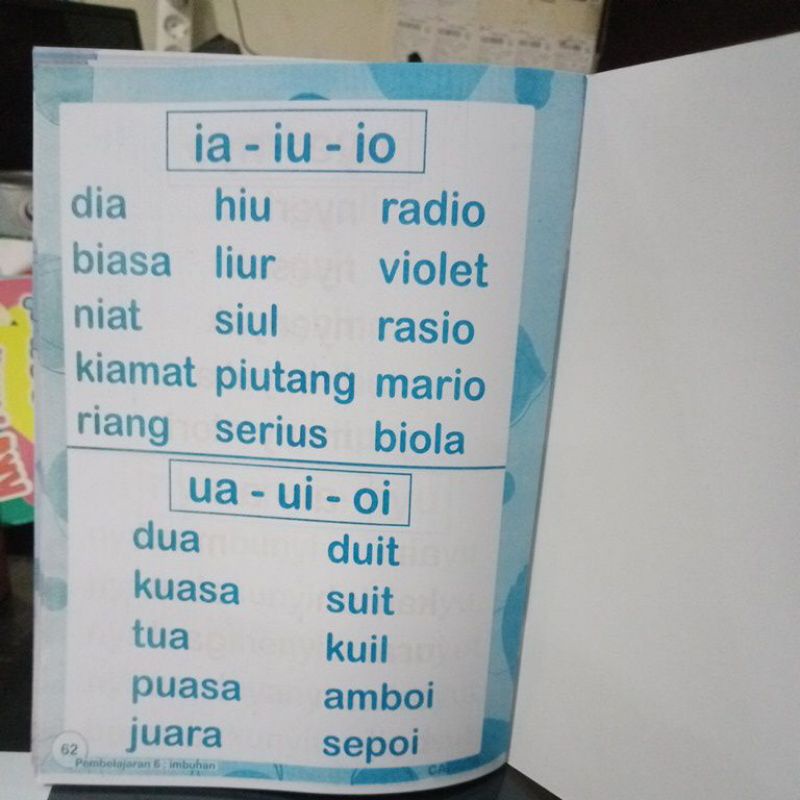 ia - iu - io
dia hiu radio
biasa liur violet
niat siul rasio
kiamat piutang mario
riang serius biola
ua - ui - oi
dua duit
kuasa suit
tua kuil
puasa amboi
juara sepoi
62
Pembelajaran 6 : imbuhan